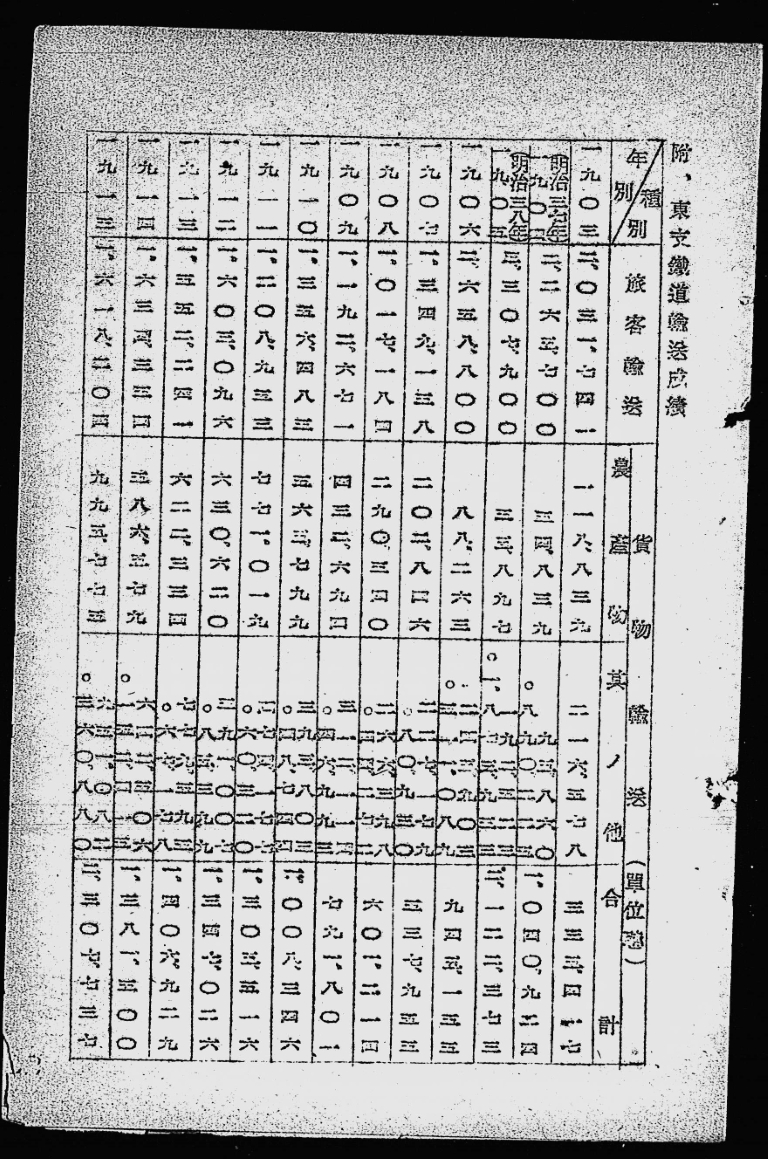 附、東支鐵道輸送成績
年別 種別 旅客輸送 貨物輸送(單位噸)
農產物 其ノ他 合計
一九〇三 二、〇三一、七四一 一一八、八三九 二一六、五七八 三三五、四一七
明治三七年
一九〇四 二、二六五、七〇〇 三四、八三九 一、〇四〇、九二四
明治三八年
一九〇五 三、三〇七、九〇〇 二、一二二、三七三
一九〇六 二、六五八、八〇〇 八八、二六三 九四五、一五五
一九〇七 一、三四九、一三八 二〇二、八四六 五三七、九五五
一九〇八 一、〇一七、一八四 二九〇、三四〇 六〇一、二一四
一九〇九 一、一九二、六七一 四三二、六九四 三一二、一一四 。四六、九九三 七九一、八〇一
一九一〇 一、三五六、四八三 五六三、七九九 三九五、八〇三 。四八、七四四 一、〇〇八、三四六
一九一一 一、二〇八、九三三 七七一、〇一九 二七四、一七七 。二六〇、三二〇 一、三〇五、五一六
一九一二 一、六〇三、〇九六 六三〇、六二〇 一、三四七、〇二六
一九一三 一、五五二、二四一 六二二、三三四 一、四〇六、九二九
一九一四 一、六三四、三三四 五八六、五七九 六四二、三〇六 。一五二、四一五 一、三八一、三〇〇
一九一三 二、六一八、二〇四 九九五、七七五 九五一、〇八二 。三六〇、八八〇 二、三〇七、七三七